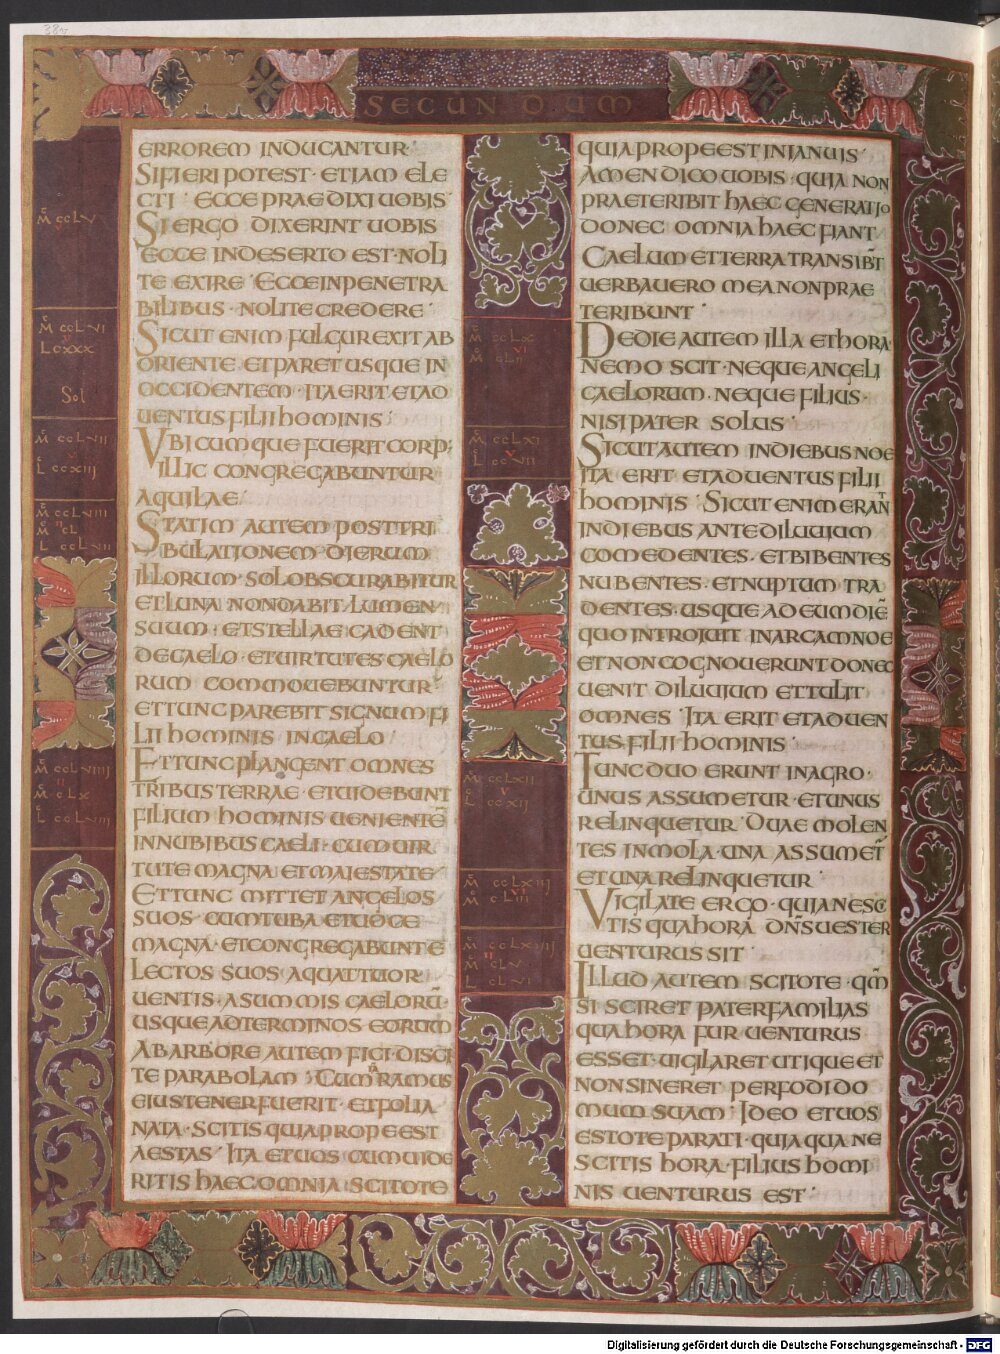 SECUNDUM
ERROREM INDUCANTUR·
SIFIERI POTEST· ETIAM ELE
CTI· ECCE PRAEDIXI UOBIS
SI ERGO DIXERINT UOBIS
ECCE INDESERTO EST· NOLI
TE EXIRE· ECCE INPENETRA
BILIBUS· NOLITE CREDERE·
SICUT ENIM FULGUR EXIT AB
ORIENTE· ET PARET USQUE IN
OCCIDENTEM· ITA ERIT ET AD
UENTUS FILII HOMINIS·
UBICUMQUE FUERIT CORP;
ILLIC CONGREGABUNTUR
AQUILAE
STATIM AUTEM POST TRI
BULATIONEM DIERUM
ILLORUM· SOL OBSCURABITUR
ET LUNA NON DABIT LUMEN
SUUM· ET STELLAE CADENT
DE CAELO· ET UIRTUTES CAELO
RUM COMMOUEBUNTUR
ET TUNC PAREBIT SIGNUM FI
LII HOMINIS IN CAELO
ET TUNC PLANGENT OMNES
TRIBUS TERRAE· ET UIDEBUNT
FILIUM HOMINIS UENIENTĒ
IN NUBIBUS CAELI· CUM UIR
TUTE MAGNA ET MAIESTATE
ET TUNC MITTET ANGELOS
SUOS· CUM TUBA ET UOCE
MAGNA· ET CONGREGABUNT E
LECTOS SUOS A QUATTUOR
UENTIS· A SUMMIS CAELORŪ·
USQUE AD TERMINOS EORUM
AB ARBORE AUTEM FICI DISCI
TE PARABOLAM· CUM RAMUS
EIUS TENER FUERIT· ET FOLIA
NATA· SCITIS QUIA PROPE EST
AESTAS· ITA ET UOS CUM UIDE
RITIS HAEC OMNIA SCITOTE
QUIA PROPE EST IN IANUIS·
AMEN DICO UOBIS· QUIA NON
PRAETERIBIT HAEC GENERATIO
DONEC OMNIA HAEC FIANT
CAELUM ET TERRA TRANSIBT̄
UERBA UERO MEA NON PRAE
TERIBUNT·
DE DIE AUTEM ILLA ET HORA
NEMO SCIT· NEQUE ANGELI
CAELORUM· NEQUE FILIUS·
NISI PATER SOLUS·
SICUT AUTEM IN DIEBUS NOE
ITA ERIT ET ADUENTUS FILII
HOMINIS· SICUT ENIM ERANT
IN DIEBUS ANTE DILUUIUM
COMEDENTES· ET BIBENTES
NUBENTES· ET NUPTUM TRA
DENTES· USQUE AD EUM DIĒ
QUO INTROIUIT IN ARCAM NOE
ET NON COGNOUERUNT DONEC
UENIT DILUUIUM ET TULIT
OMNES· ITA ERIT ET ADUEN
TUS FILII HOMINIS·
TUNC DUO ERUNT IN AGRO·
UNUS ASSUMETUR· ET UNUS
RELINQUETUR· DUAE MOLEN
TES IN MOLA· UNA ASSUMET̄
ET UNA RELINQUETUR·
UIGILATE ERGO· QUIA NESC
TIS QUA HORA DN̄S UESTER
UENTURUS SIT
ILLUD AUTEM SCITOTE· QM̄
SI SCIRET PATER FAMILIAS
QUA HORA FUR UENTURUS
ESSET· UIGILARET UTIQUE ET
NON SINERET PERFODI DO
MUM SUAM· IDEO ET UOS
ESTOTE PARATI· QUIA QUA NE
SCITIS HORA· FILIUS HOMI
NIS UENTURUS EST·
Digitalisierung gefördert durch die Deutsche Forschungsgemeinschaft - DFG